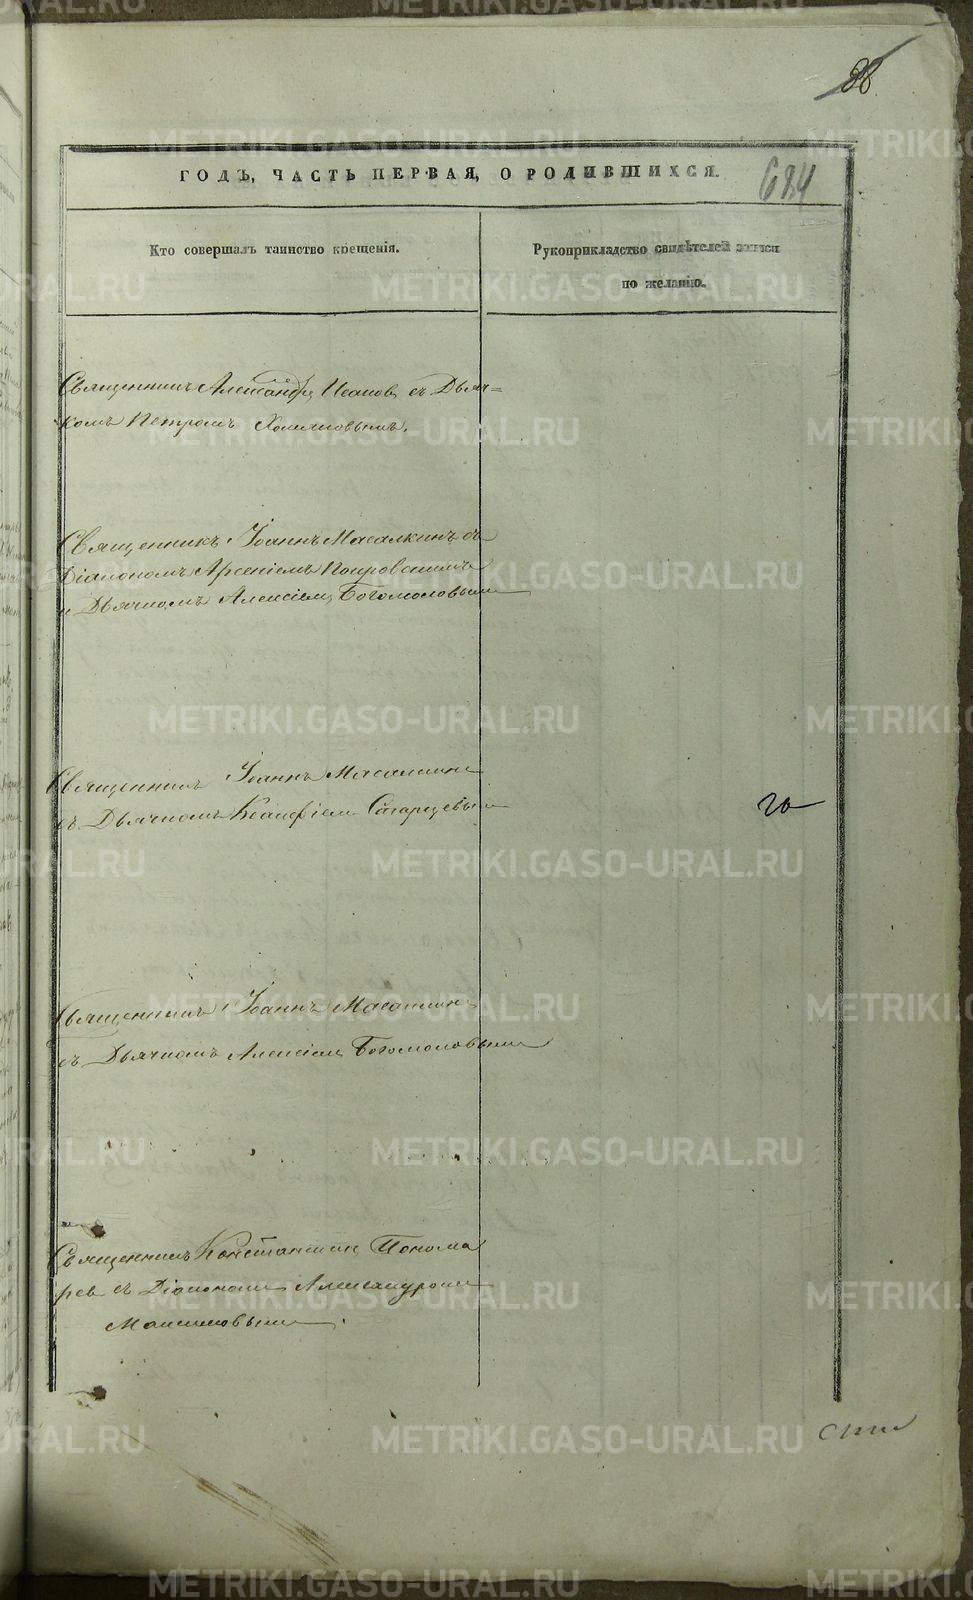 88
ГОДЪ, ЧАСТЬ ПЕРВАЯ, О РОДИВШИХСЯ.
684
Кто совершалъ таинство крещенія.
Рукоприкладство свидѣтелей записи
по желанію.
Священникъ Александръ Ивановъ съ Дьяч=
комъ Петромъ
Священникъ Іоаннъ Масалкинъ съ
Діакономъ Арсеніемъ Покровскимъ
и Дьячкомъ Алексіемъ Богомоловымъ
Священникъ Іоаннъ Масалкинъ
съ Дьячкомъ Старцевымъ
го
Священникъ Іоаннъ Масалкинъ
съ Дьячкомъ Алексіемъ Богомоловымъ
Священникъ Константинъ Понома
ревъ съ Діакономъ Александромъ
Максимовымъ.
METRIKI.GASO-URAL.RU